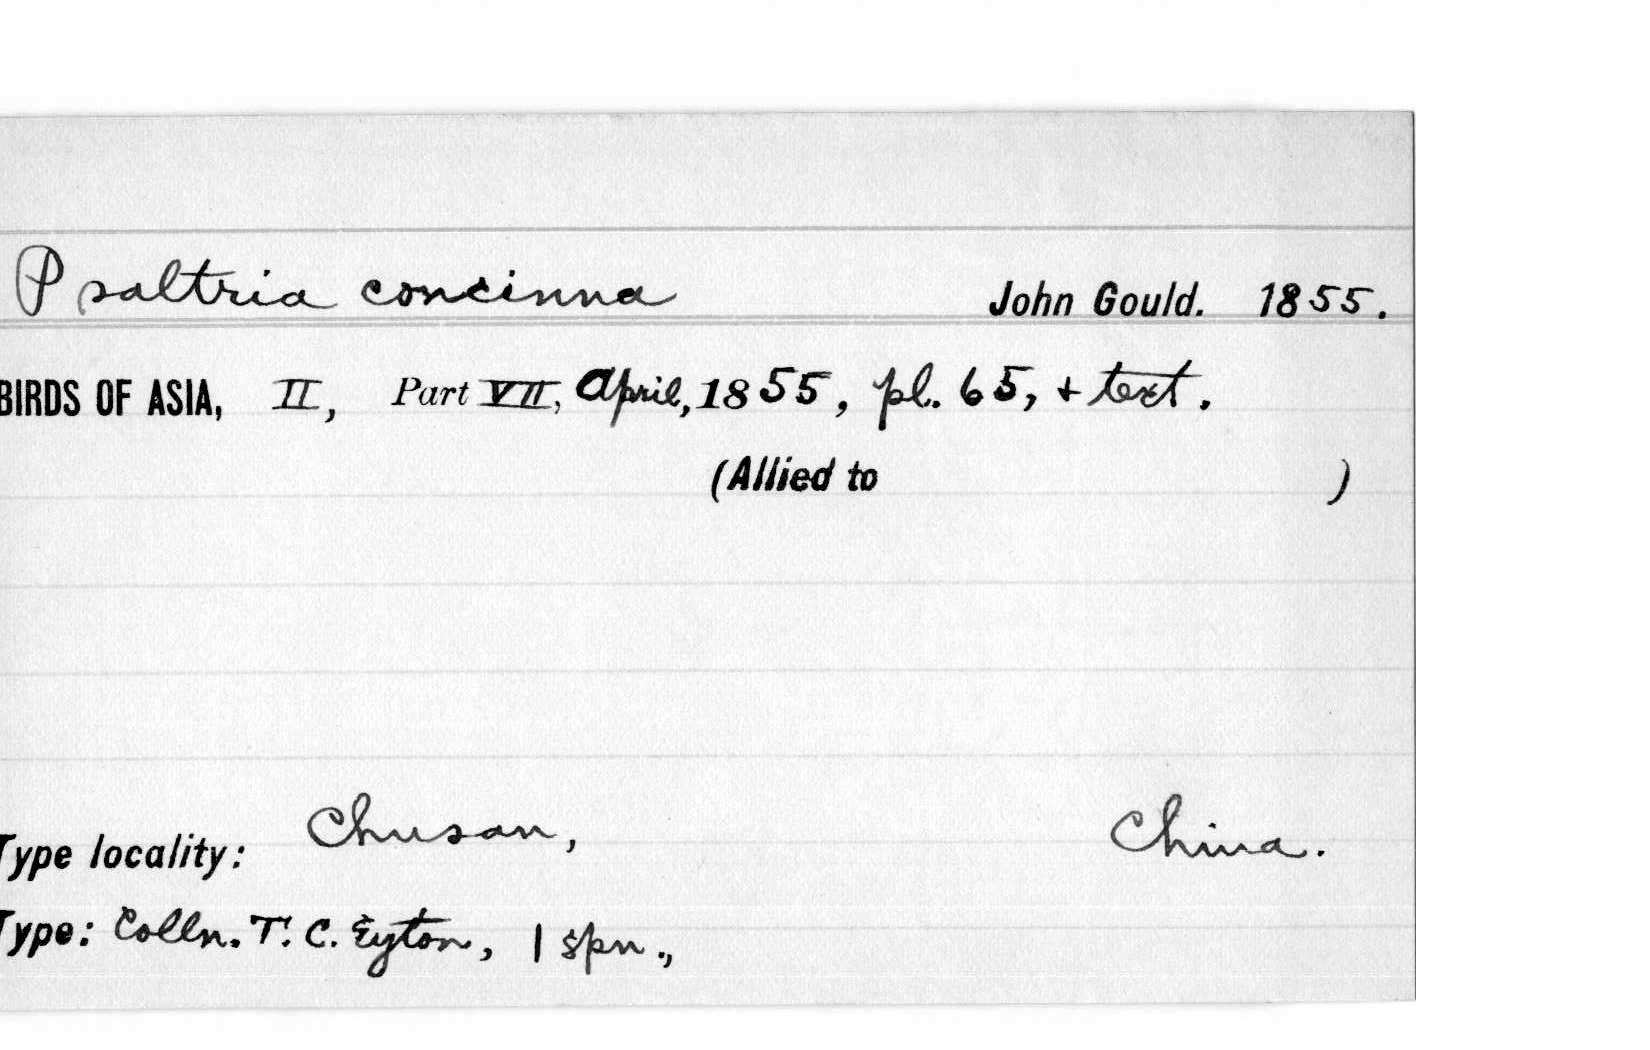 Psaltria concinna John Gould. 1855.
BIRDS OF ASIA, II, Part VII, April, 1855, pl. 65, + text.
(Allied to )
Type locality: Chusan, China.
Type: Colln. T. C. Eyton, 1 spn.,